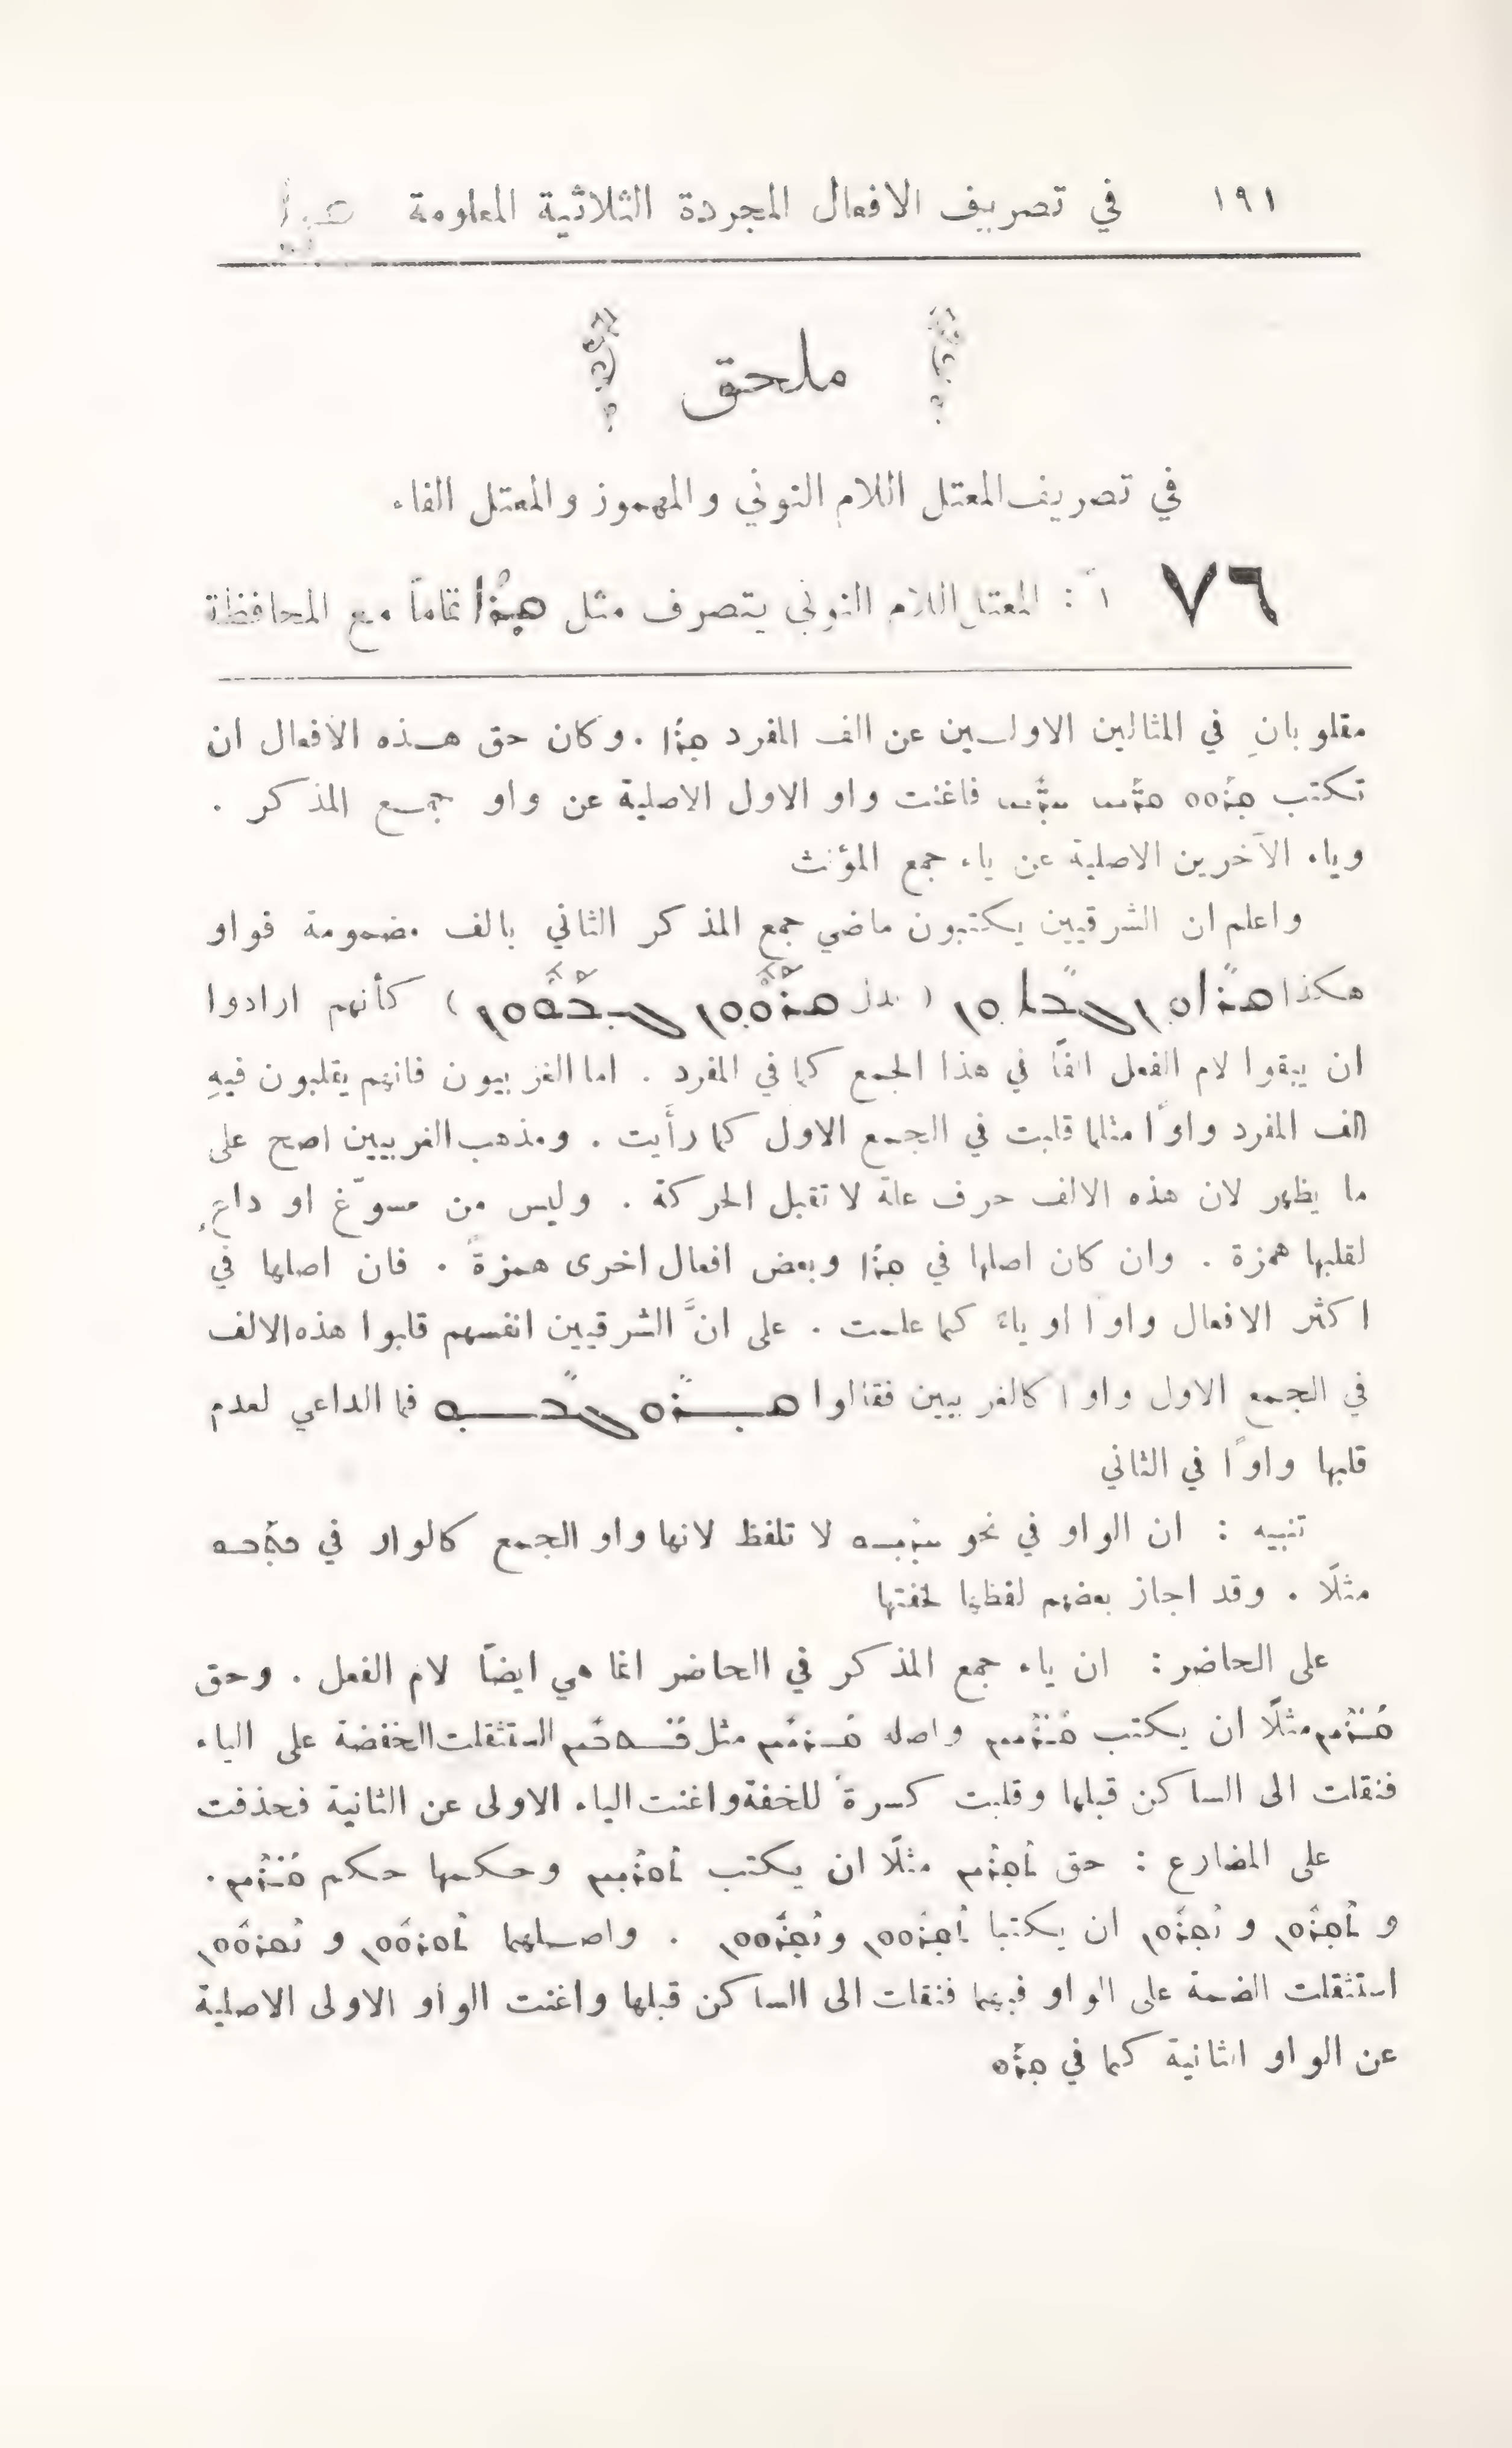 ١٩١ في تصريف الافعال المجردة الثلاثية المعلومة
ملحق
في تصريف المعتل اللام النوني والمهموز والمعتل الفاء
٧٦ ١ً : المعتل اللام النوني يتصرف مثل ܣܢܐ تماماً مع المحافظة
مقلوبانِ في المثالين الاولين عن الف المفرد ܣܢܐ . وكان حق هذه الافعال ان
تكتب فاغنت واو الاول الاصلية عن واو جمع المذكر .
وياء الآخرين الاصلية عن ياء جمع المؤنث
واعلم ان الشرقيين يكتبون ماضي جمع المذكر الثاني بالف مضمومة فواو
هكذا كأنهم ارادوا
ان يبقوا لام الفعل الفاً في هذا الجمع كما في المفرد . اما الغربيون فانهم يقلبون فيهِ
الف المفرد واوًا مثلما قلبت في الجمع الاول كما رأَيت . ومذهب الغربيين اصح على
ما يظهر لان هذه الالف حرف علة لا تقبل الحركة . وليس من مسوّغ او داعٍ
لقلبها همزة . وان كان اصلها في ܣܢܐ وبعض افعال اخرى همزةً . فان اصلها في
اكثر الافعال واوا او ياءً كما علمت . على انَّ الشرقيين انفسهم قلبوا هذه الالف
في الجمع الاول واوا كالغربيين فقالوا فما الداعي لعدم
قلبها واوًا في الثاني
تنبيه : ان الواو في نحو لا تلفظ لانها واو الجمع كالواو في
مثلًا . وقد اجاز بعضهم لفظها لخفتها
على الحاضر : ان ياء جمع المذكر في الحاضر انما هي ايضاً لام الفعل . وحق
مثلًا ان يكتب واصله مثل استثقلت الخفضة على الياء
فنقلت الى الساكن قبلها وقلبت كسرةً للخفة واغنت الياء الاولى عن الثانية فحذفت
على المضارع : حق مثلًا ان يكتب وحكمها حكم .
و و ان يكتبا و . واصلهما و
استثقلت الضمة على الواو فيهما فنقلت الى الساكن قبلها واغنت الواو الاولى الاصلية
عن الواو الثانية كما في